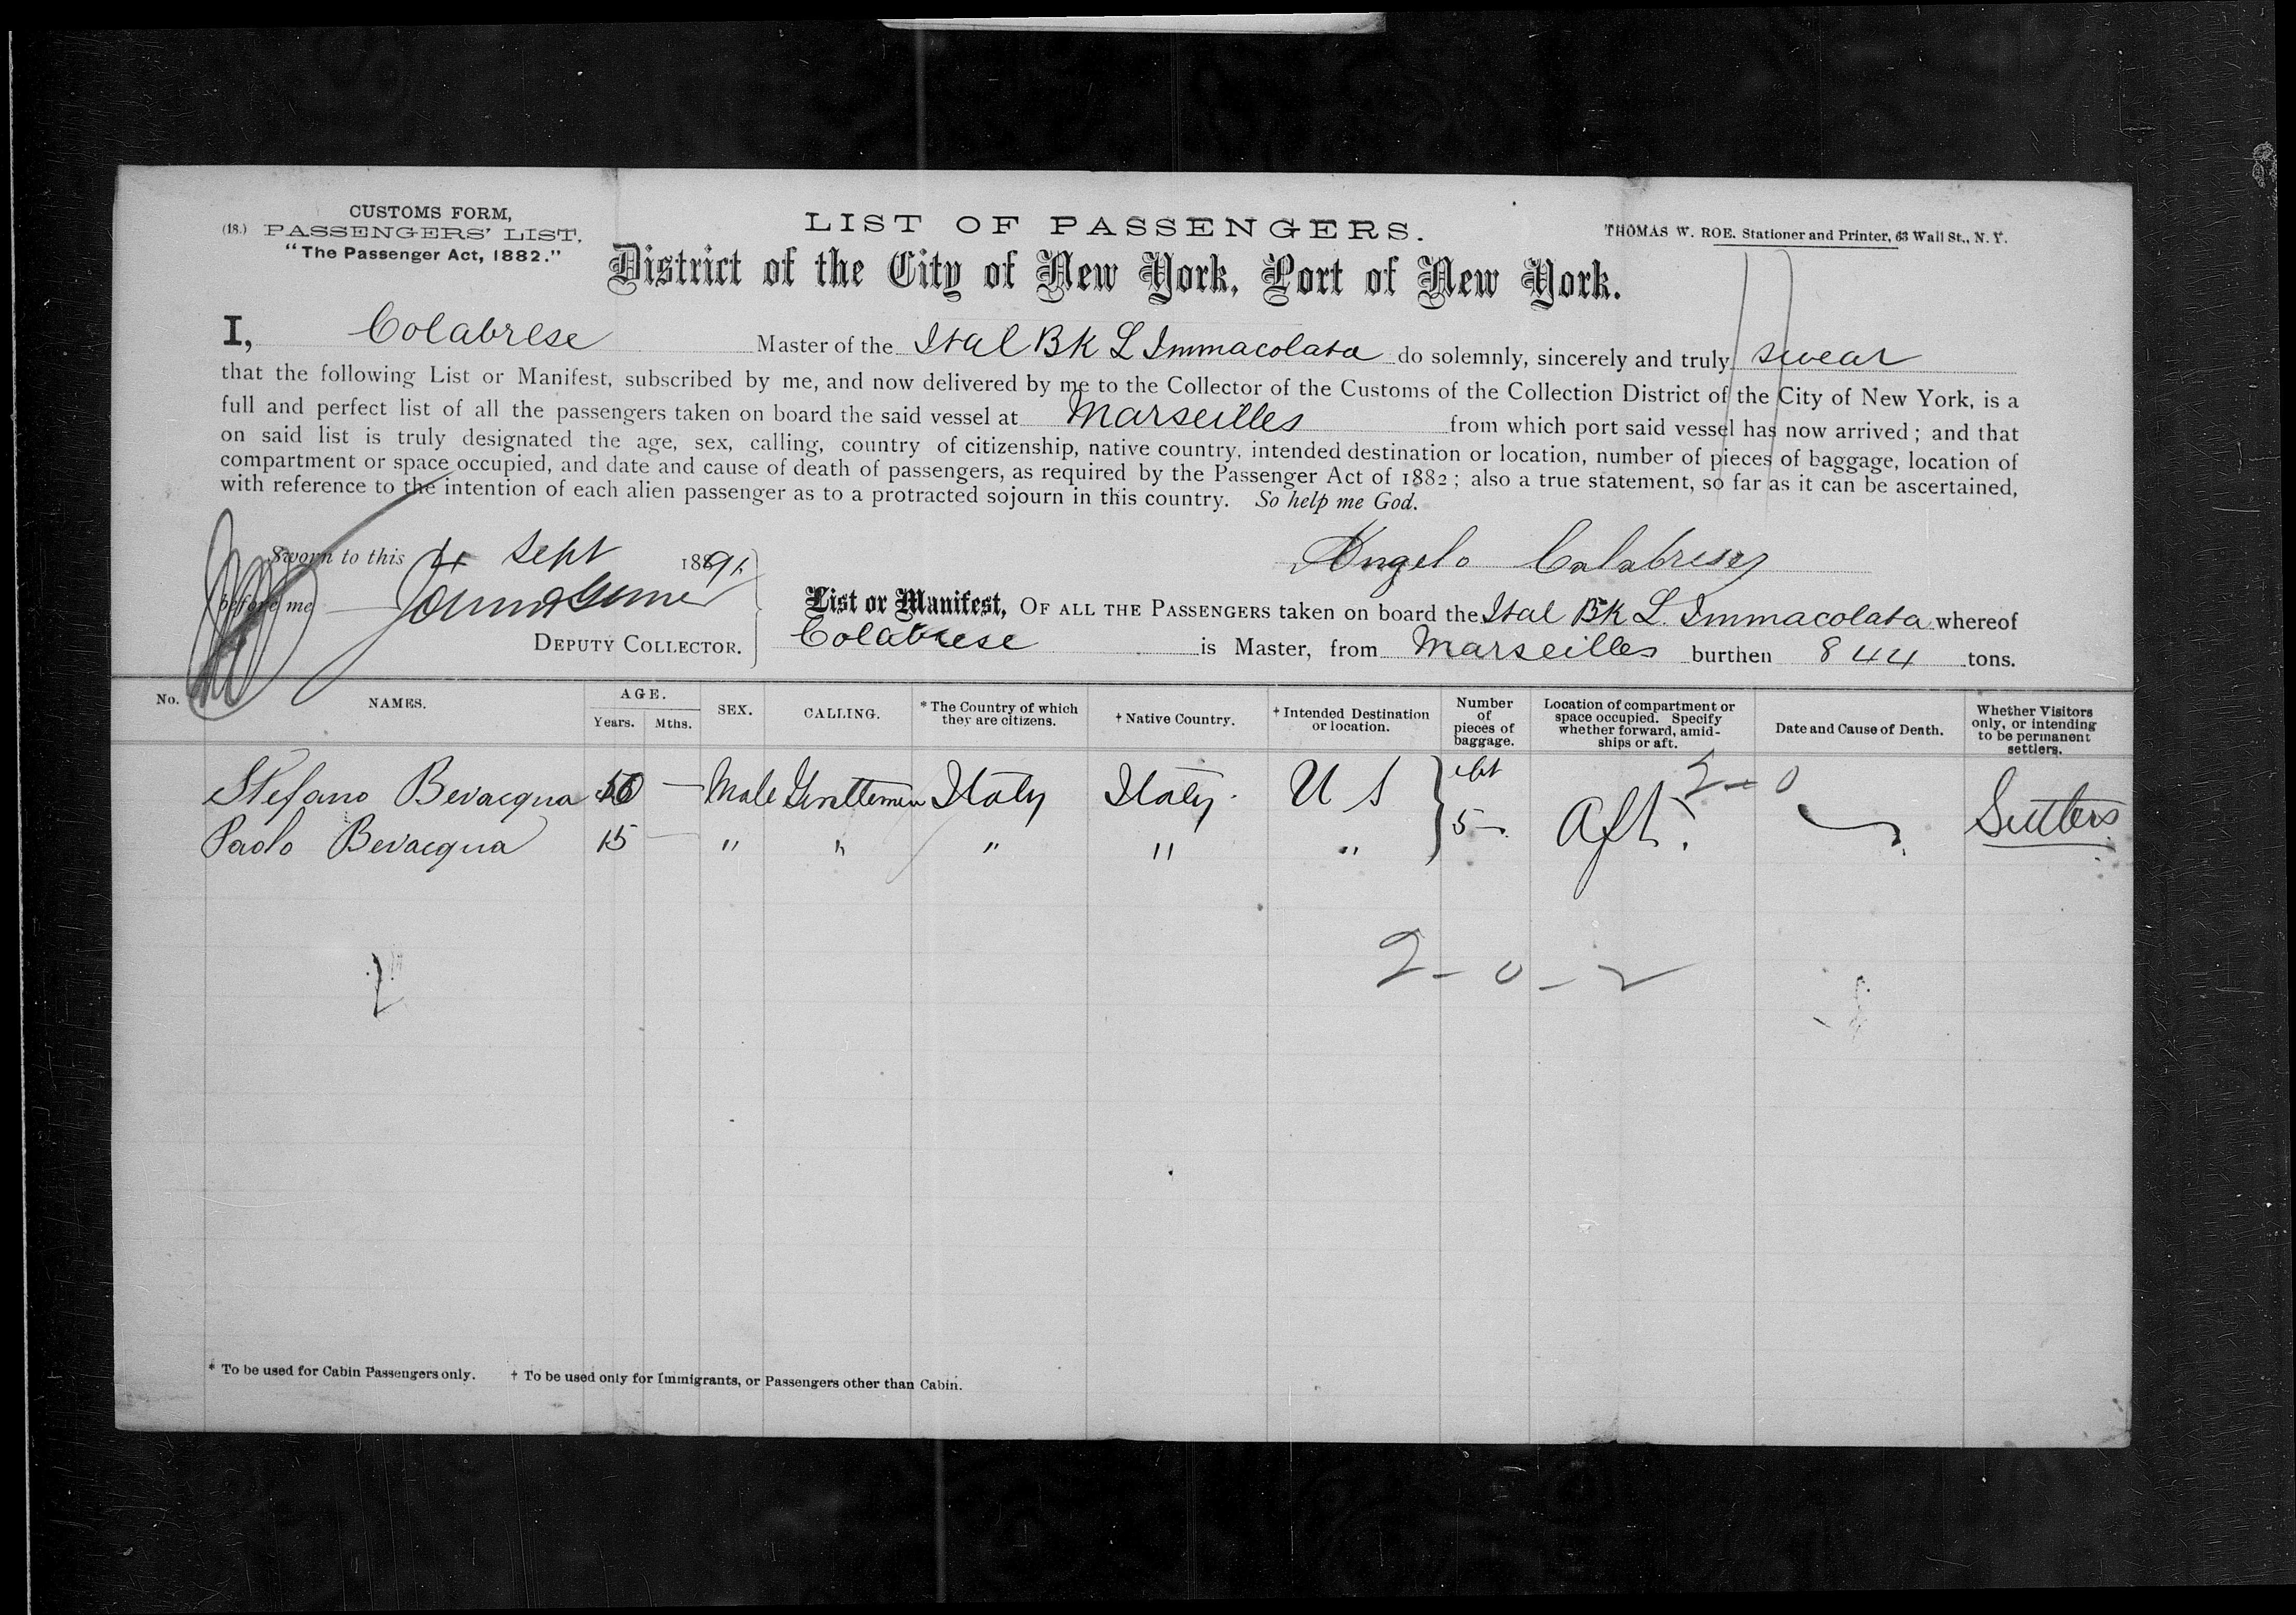 CUSTOMS FORM,
(18.) PASSENGERS' LIST,
"The Passenger Act, 1882."
LIST OF PASSENGERS.
THOMAS W. ROE. Stationer and Printer, 63 Wall St., N. Y.
District of the City of New York, Port of New York.
I, Colabrese Master of the Ital Bk L Immacolata do solemnly, sincerely and truly swear
that the following List or Manifest, subscribed by me, and now delivered by me to the Collector of the Customs of the Collection District of the City of New York, is a
full and perfect list of all the passengers taken on board the said vessel at Marseilles from which port said vessel has now arrived; and that
on said list is truly designated the age, sex, calling, country of citizenship, native country, intended destination or location, number of pieces of baggage, location of
compartment or space occupied, and date and cause of death of passengers, as required by the Passenger Act of 1882; also a true statement, so far as it can be ascertained,
with reference to the intention of each alien passenger as to a protracted sojourn in this country. So help me God.
Sworn to this 4 Sept 1891
Angelo Calabrese
before me
DEPUTY COLLECTOR.
List or Manifest, OF ALL THE PASSENGERS taken on board the Ital Bk L. Immacolata whereof
Colabrese is Master, from Marseilles burthen 844 tons.
No. NAMES. AGE. Years. Mths. SEX. CALLING. * The Country of which they are citizens. † Native Country. † Intended Destination or location. Number of pieces of baggage. Location of compartment or space occupied. Specify whether forward, amid-ships or aft. Date and Cause of Death. Whether Visitors only, or intending to be permanent settlers.
Stefano Bevacqua — Male Gentlemen Italy Italy. U S
Paolo Bevacqua 15 — " " " " " 5 Aft. Settlers
2 - 0
2 - 0 - 2
* To be used for Cabin Passengers only. † To be used only for Immigrants, or Passengers other than Cabin.